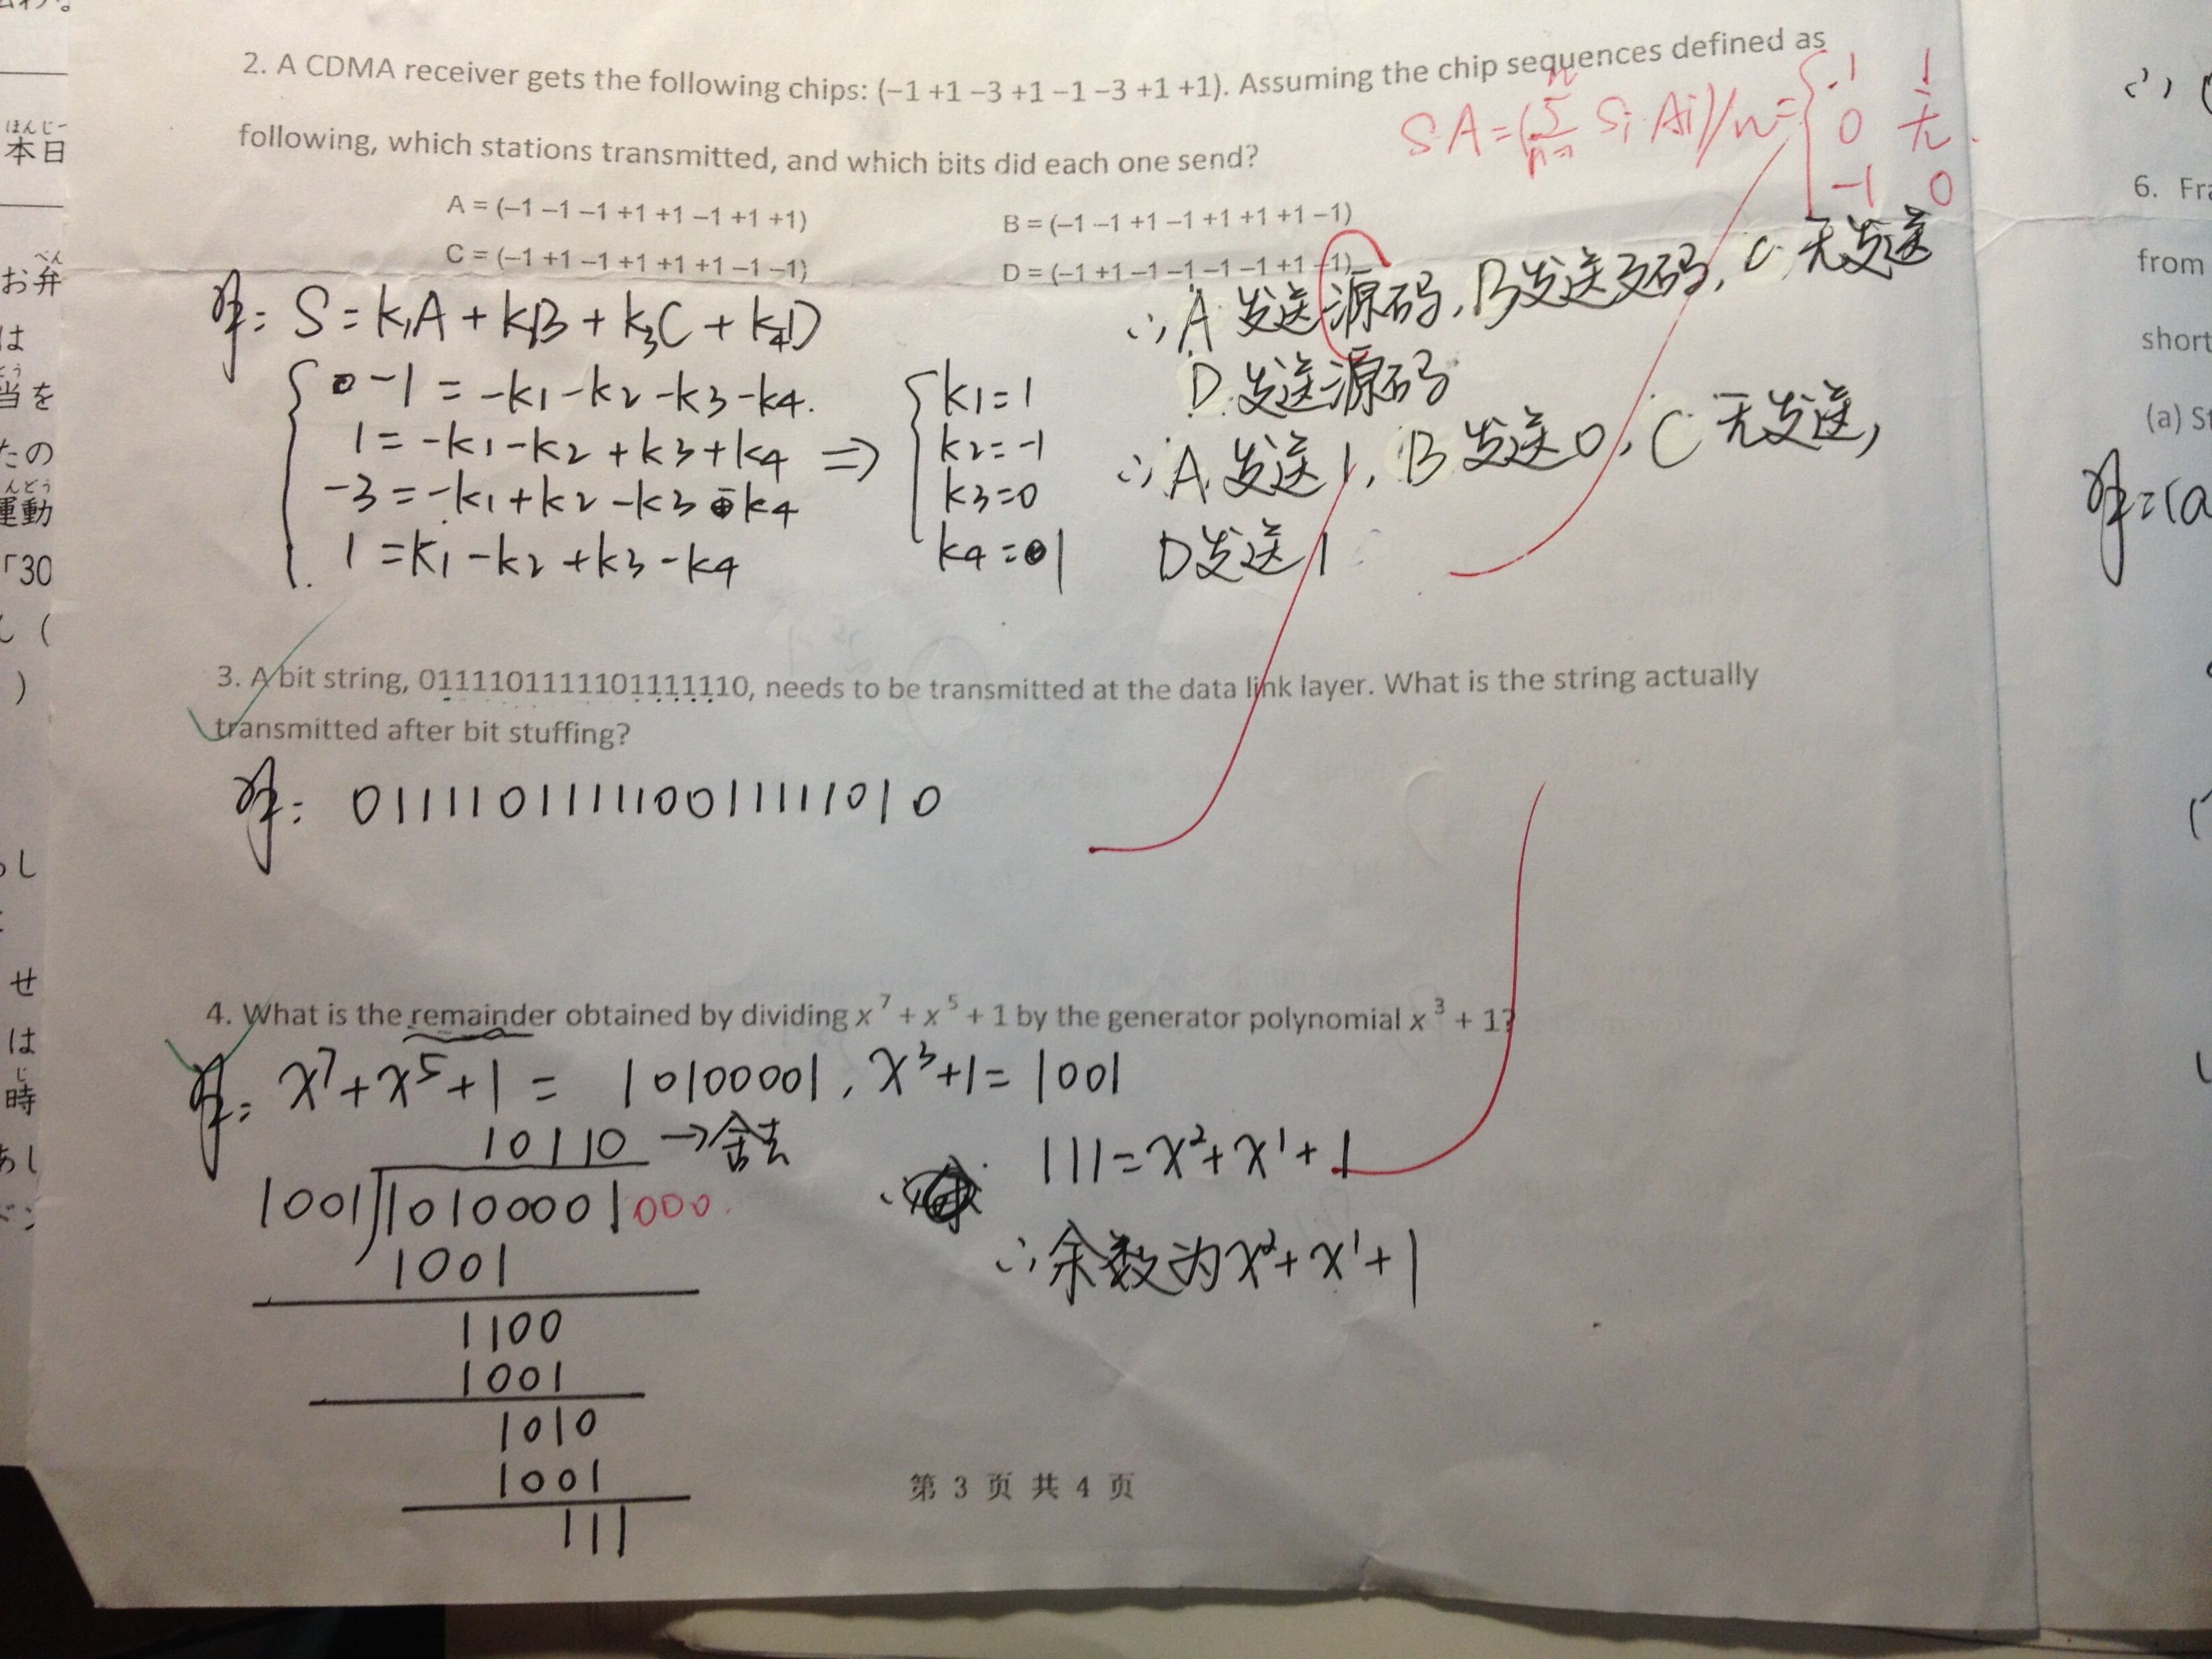 2. A CDMA receiver gets the following chips: (–1 +1 –3 +1 –1 –3 +1 +1). Assuming the chip sequences defined as
following, which stations transmitted, and which bits did each one send?
A = (–1 –1 –1 +1 +1 –1 +1 +1)
B = (–1 –1 +1 –1 +1 +1 +1 –1)
C = (–1 +1 –1 +1 +1 +1 –1 –1)
D = (–1 +1 –1 –1 –1 –1 +1 –1)
1 1
0 无
-1 0
解: S = k1A + k2B + k3C + k4D
-1 = -k1 - k2 - k3 - k4.
1 = -k1 - k2 + k3 + k4 ⇒
-3 = -k1 + k2 - k3 - k4
1 = k1 - k2 + k3 - k4
k1 = 1
k2 = -1
k3 = 0
k4 = 1
∴ A 发送源码, B发送反码, C 无发送
D 发送源码
∴ A 发送1, B 发送0, C 无发送,
D发送1
3. A bit string, 0111101111101111110, needs to be transmitted at the data link layer. What is the string actually
transmitted after bit stuffing?
解: 011110111110011111010
4. What is the remainder obtained by dividing x⁷ + x⁵ + 1 by the generator polynomial x³ + 1?
解: x⁷+x⁵+1 = 10100001, x³+1 = 1001
10110 →舍去
1001 10100001 000
1001
1100
1001
1010
1001
111
111 = x²+x¹+1
∴余数为x²+x¹+1
第 3 页 共 4 页
本日
ほんじ
お弁
べん
は
当を
とう
たの
運動
んどう
「30
せ
は
時
じ
6. Fra
from
short
(a) St
解: (a